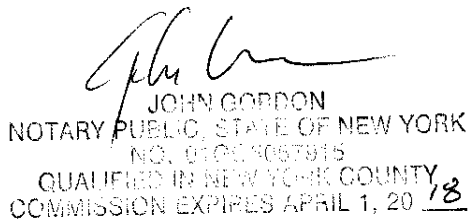 JOHN GORDON
NOTARY PUBLIC, STATE OF NEW YORK
NO.
QUALIFIED IN NEW YORK COUNTY
COMMISSION EXPIRES APRIL 1, 20 18